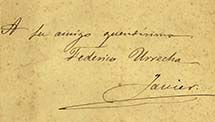 A su amigo queridisimo
Federico Urrecha
Javier.